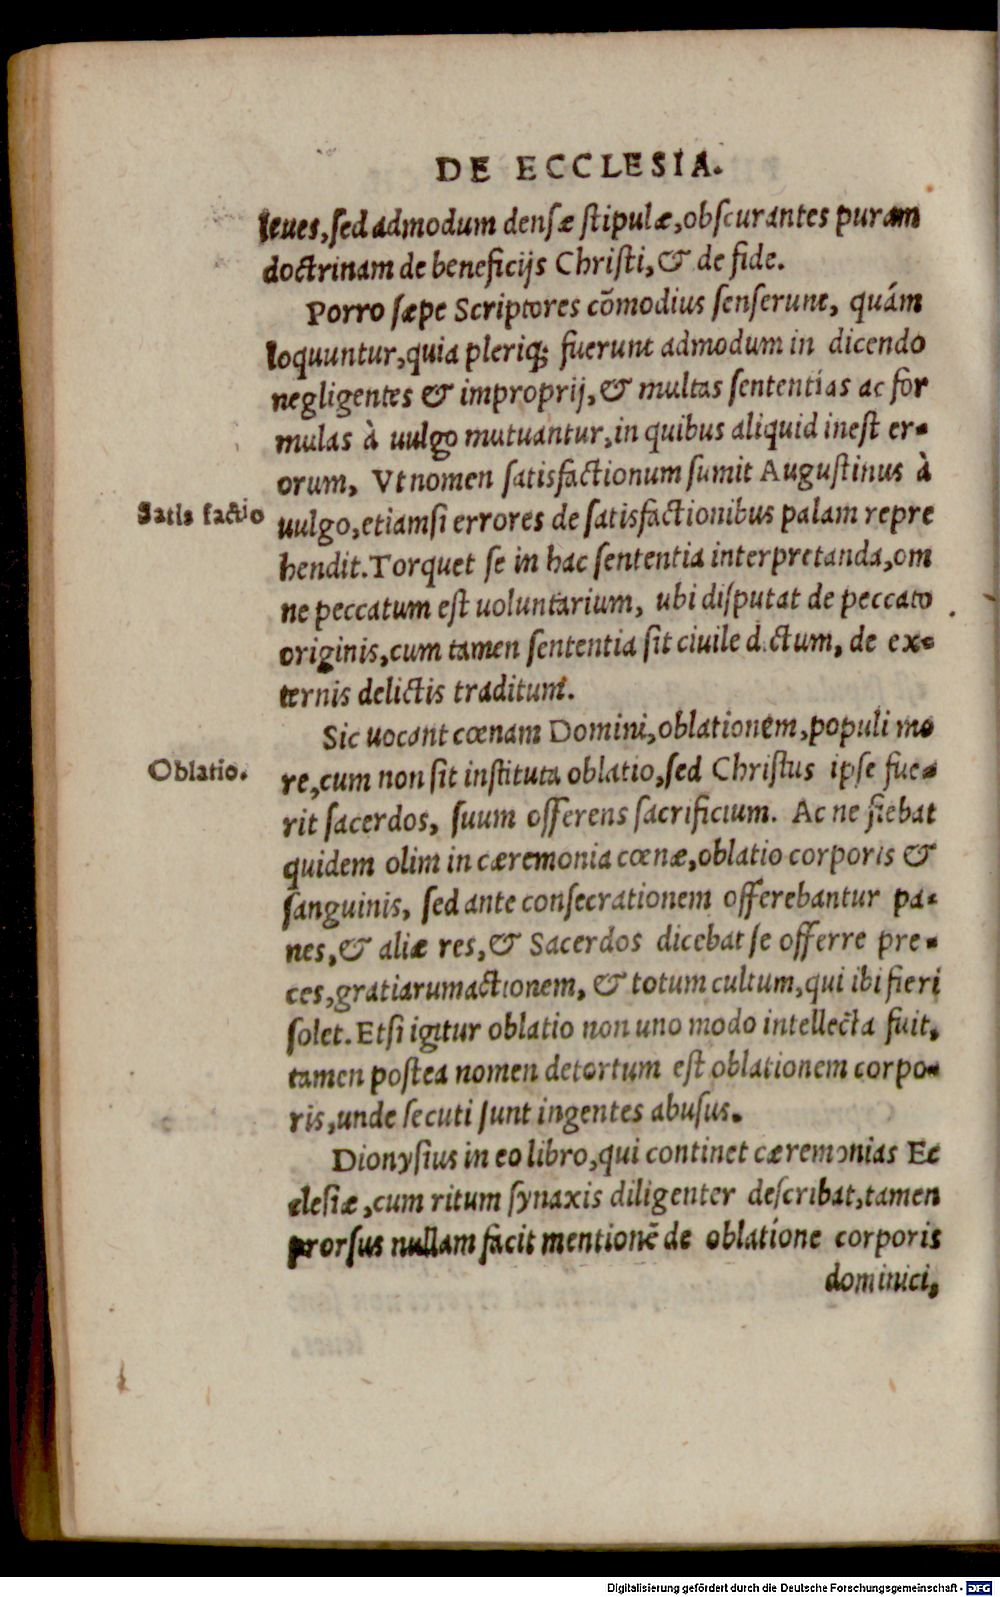 DE ECCLESIA.
leues, sed admodum densæ stipulæ, obscurantes puram
doctrinam de beneficijs Christi, & de fide.
Porro sæpe Scriptores cõmodius senserunt, quám
loquuntur, quia pleriq; fuerunt admodum in dicendo
negligentes & improprij, & multas sententias ac for
mulas à uulgo mutuantur, in quibus aliquid inest er-
orum, Vt nomen satisfactionum sumit Augustinus à
Satis factio
uulgo, etiamsi errores de satisfactionibus palam repre
hendit. Torquet se in hac sententia interpretanda, om
ne peccatum est uoluntarium, ubi disputat de peccato
originis, cum tamen sententia sit ciuile dictum, de ex-
ternis delictis traditum.
Sic uocant cœnam Domini, oblationem, populi mo
Oblatio.
re, cum non sit instituta oblatio, sed Christus ipse fue-
rit sacerdos, suum offerens sacrificium. Ac ne fiebat
quidem olim in cæremonia cœnæ, oblatio corporis &
sanguinis, sed ante consecrationem offerebantur pa-
nes, & aliæ res, & Sacerdos dicebat se offerre pre-
ces, gratiarumactionem, & totum cultum, qui ibi fieri
solet. Etsi igitur oblatio non uno modo intellecta fuit,
tamen postea nomen detortum est oblationem corpo-
ris, unde secuti sunt ingentes abusus.
Dionysius in eo libro, qui continet cæremonias Ec
clesiæ, cum ritum synaxis diligenter describat, tamen
prorsus nullam facit mentionẽ de oblatione corporis
dominici,
Digitalisierung gefördert durch die Deutsche Forschungsgemeinschaft - DFG